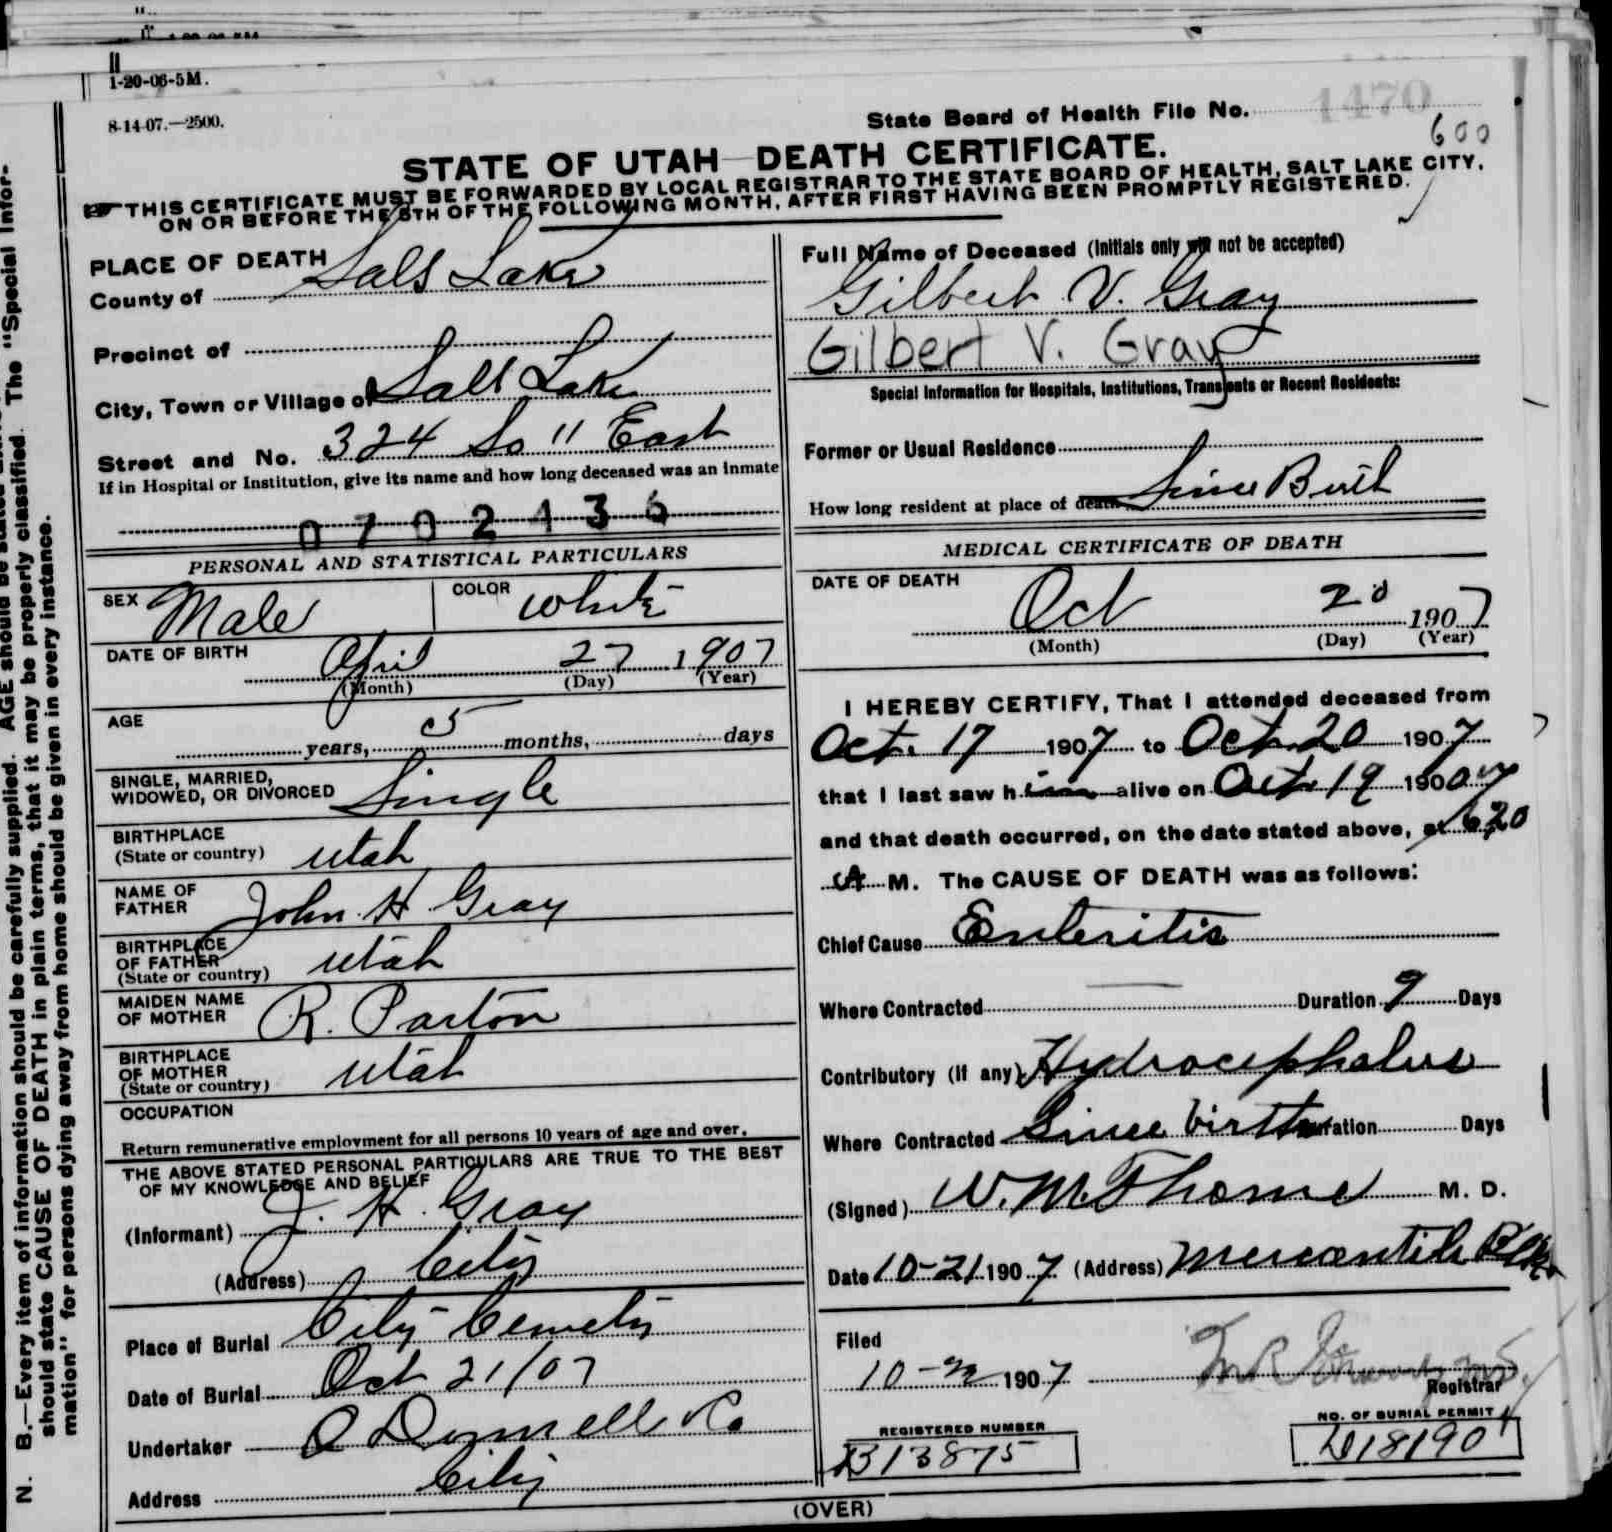 1-20-06-5M.
8-14-07.—2500.
State Board of Health File No. 1470
600
STATE OF UTAH—DEATH CERTIFICATE.
THIS CERTIFICATE MUST BE FORWARDED BY LOCAL REGISTRAR TO THE STATE BOARD OF HEALTH, SALT LAKE CITY,
ON OR BEFORE THE 5TH OF THE FOLLOWING MONTH, AFTER FIRST HAVING BEEN PROMPTLY REGISTERED.
PLACE OF DEATH
County of Salt Lake
Precinct of
City, Town or Village of Salt Lake
Street and No. 324 So 11 East
If in Hospital or Institution, give its name and how long deceased was an inmate
0702136
PERSONAL AND STATISTICAL PARTICULARS
SEX Male COLOR White
DATE OF BIRTH April 27 1907
(Month) (Day) (Year)
AGE
years, 5 months, days
SINGLE, MARRIED,
WIDOWED, OR DIVORCED Single
BIRTHPLACE
(State or country) Utah
NAME OF
FATHER John H Gray
BIRTHPLACE
OF FATHER
(State or country) Utah
MAIDEN NAME
OF MOTHER R. Paxton
BIRTHPLACE
OF MOTHER
(State or country) Utah
OCCUPATION
Return remunerative employment for all persons 10 years of age and over.
THE ABOVE STATED PERSONAL PARTICULARS ARE TRUE TO THE BEST
OF MY KNOWLEDGE AND BELIEF
(Informant) J. H. Gray
(Address) City
Place of Burial City Cemety
Date of Burial Oct 21/07
Undertaker O Donnell & Co
Address City
Full Name of Deceased (Initials only will not be accepted)
Gilbert V. Gray
Gilbert V. Gray
Special Information for Hospitals, Institutions, Transients or Recent Residents:
Former or Usual Residence
How long resident at place of death Since Birth
MEDICAL CERTIFICATE OF DEATH
DATE OF DEATH
Oct 20 1907
(Month) (Day) (Year)
I HEREBY CERTIFY, That I attended deceased from
Oct. 17 1907 to Oct. 20 1907
that I last saw h im alive on Oct. 19 1900 07
and that death occurred, on the date stated above, at 6.20
A M. The CAUSE OF DEATH was as follows:
Chief Cause Enteritis
Where Contracted — Duration 9 Days
Contributory (if any) Hydrocephalus
Where Contracted Since birth Duration Days
(Signed) W. M. Thome M. D.
Date 10-21 1907 (Address) Mercantile Blk.
Filed
10-22 1907
Registrar
REGISTERED NUMBER
B13875
NO. OF BURIAL PERMIT
D18190
(OVER)
N. B.—Every item of information should be carefully supplied. AGE should be stated
should state CAUSE OF DEATH in plain terms, that it may be properly classified. The "Special Infor-
mation" for persons dying away from home should be given in every instance.